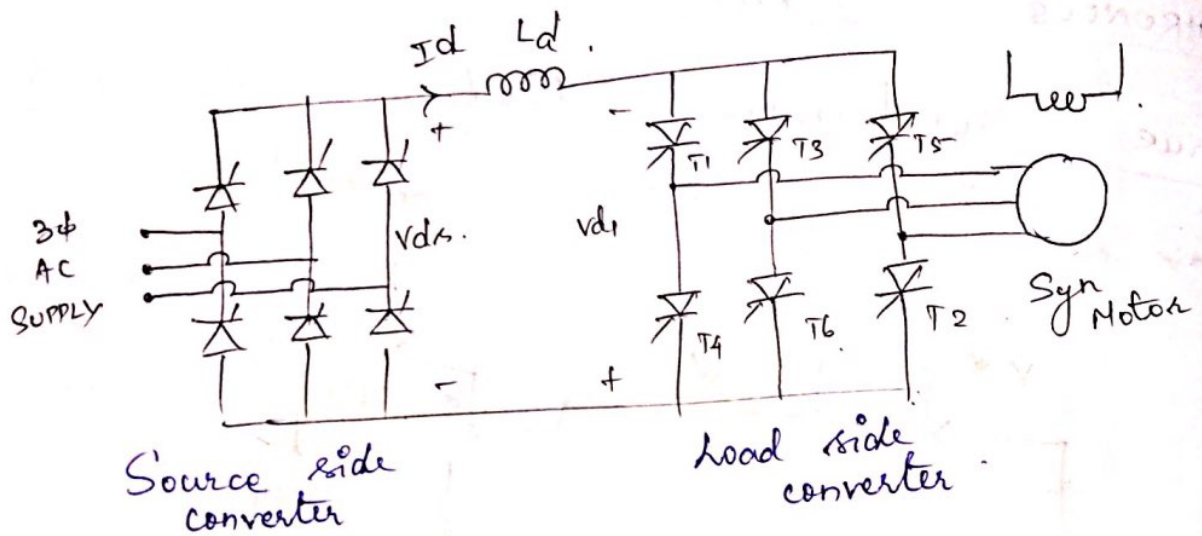 Id Ld.
+
-
3ϕ
AC
SUPPLY
Vds.
Vdl
T1
T3
T5
T4
T6.
T2
-
+
Syn
Motor
Source side
converter
Load side
converter